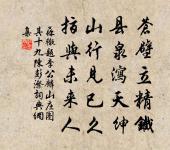 蒼壁立精鐵
縣泉瀉天紳
山行見已久
指與未來人
蘇轍題李公麟山庄圖
其十九陳彭漈詞典網
集